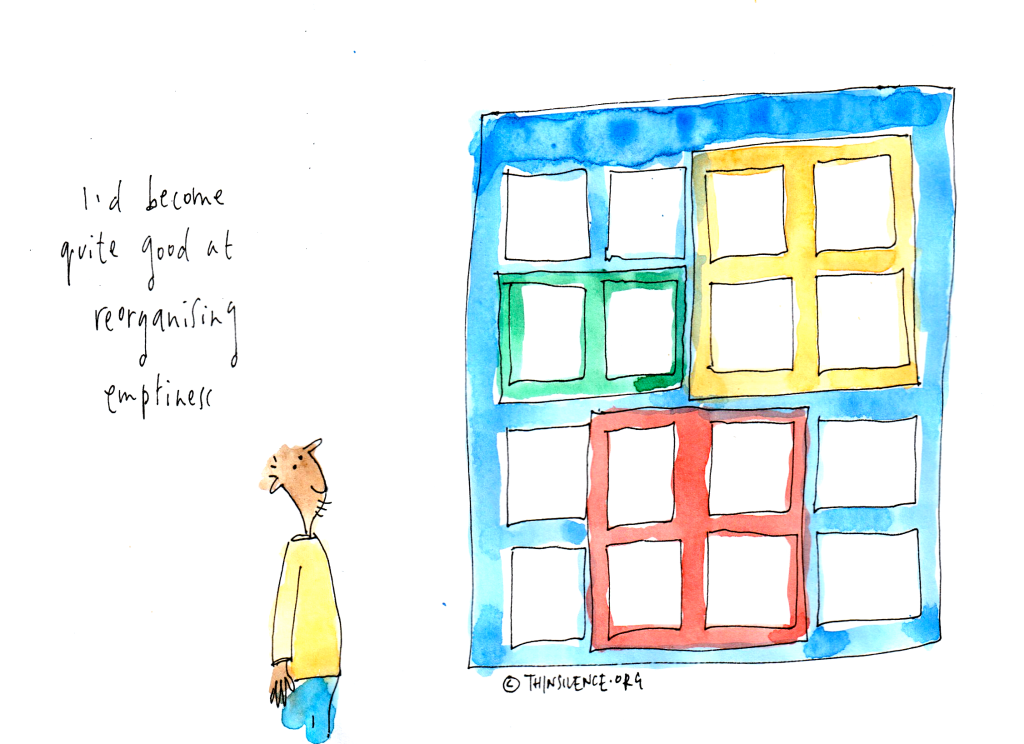 I'd become
quite good at
reorganising
emptiness
© THINSILENCE.ORG